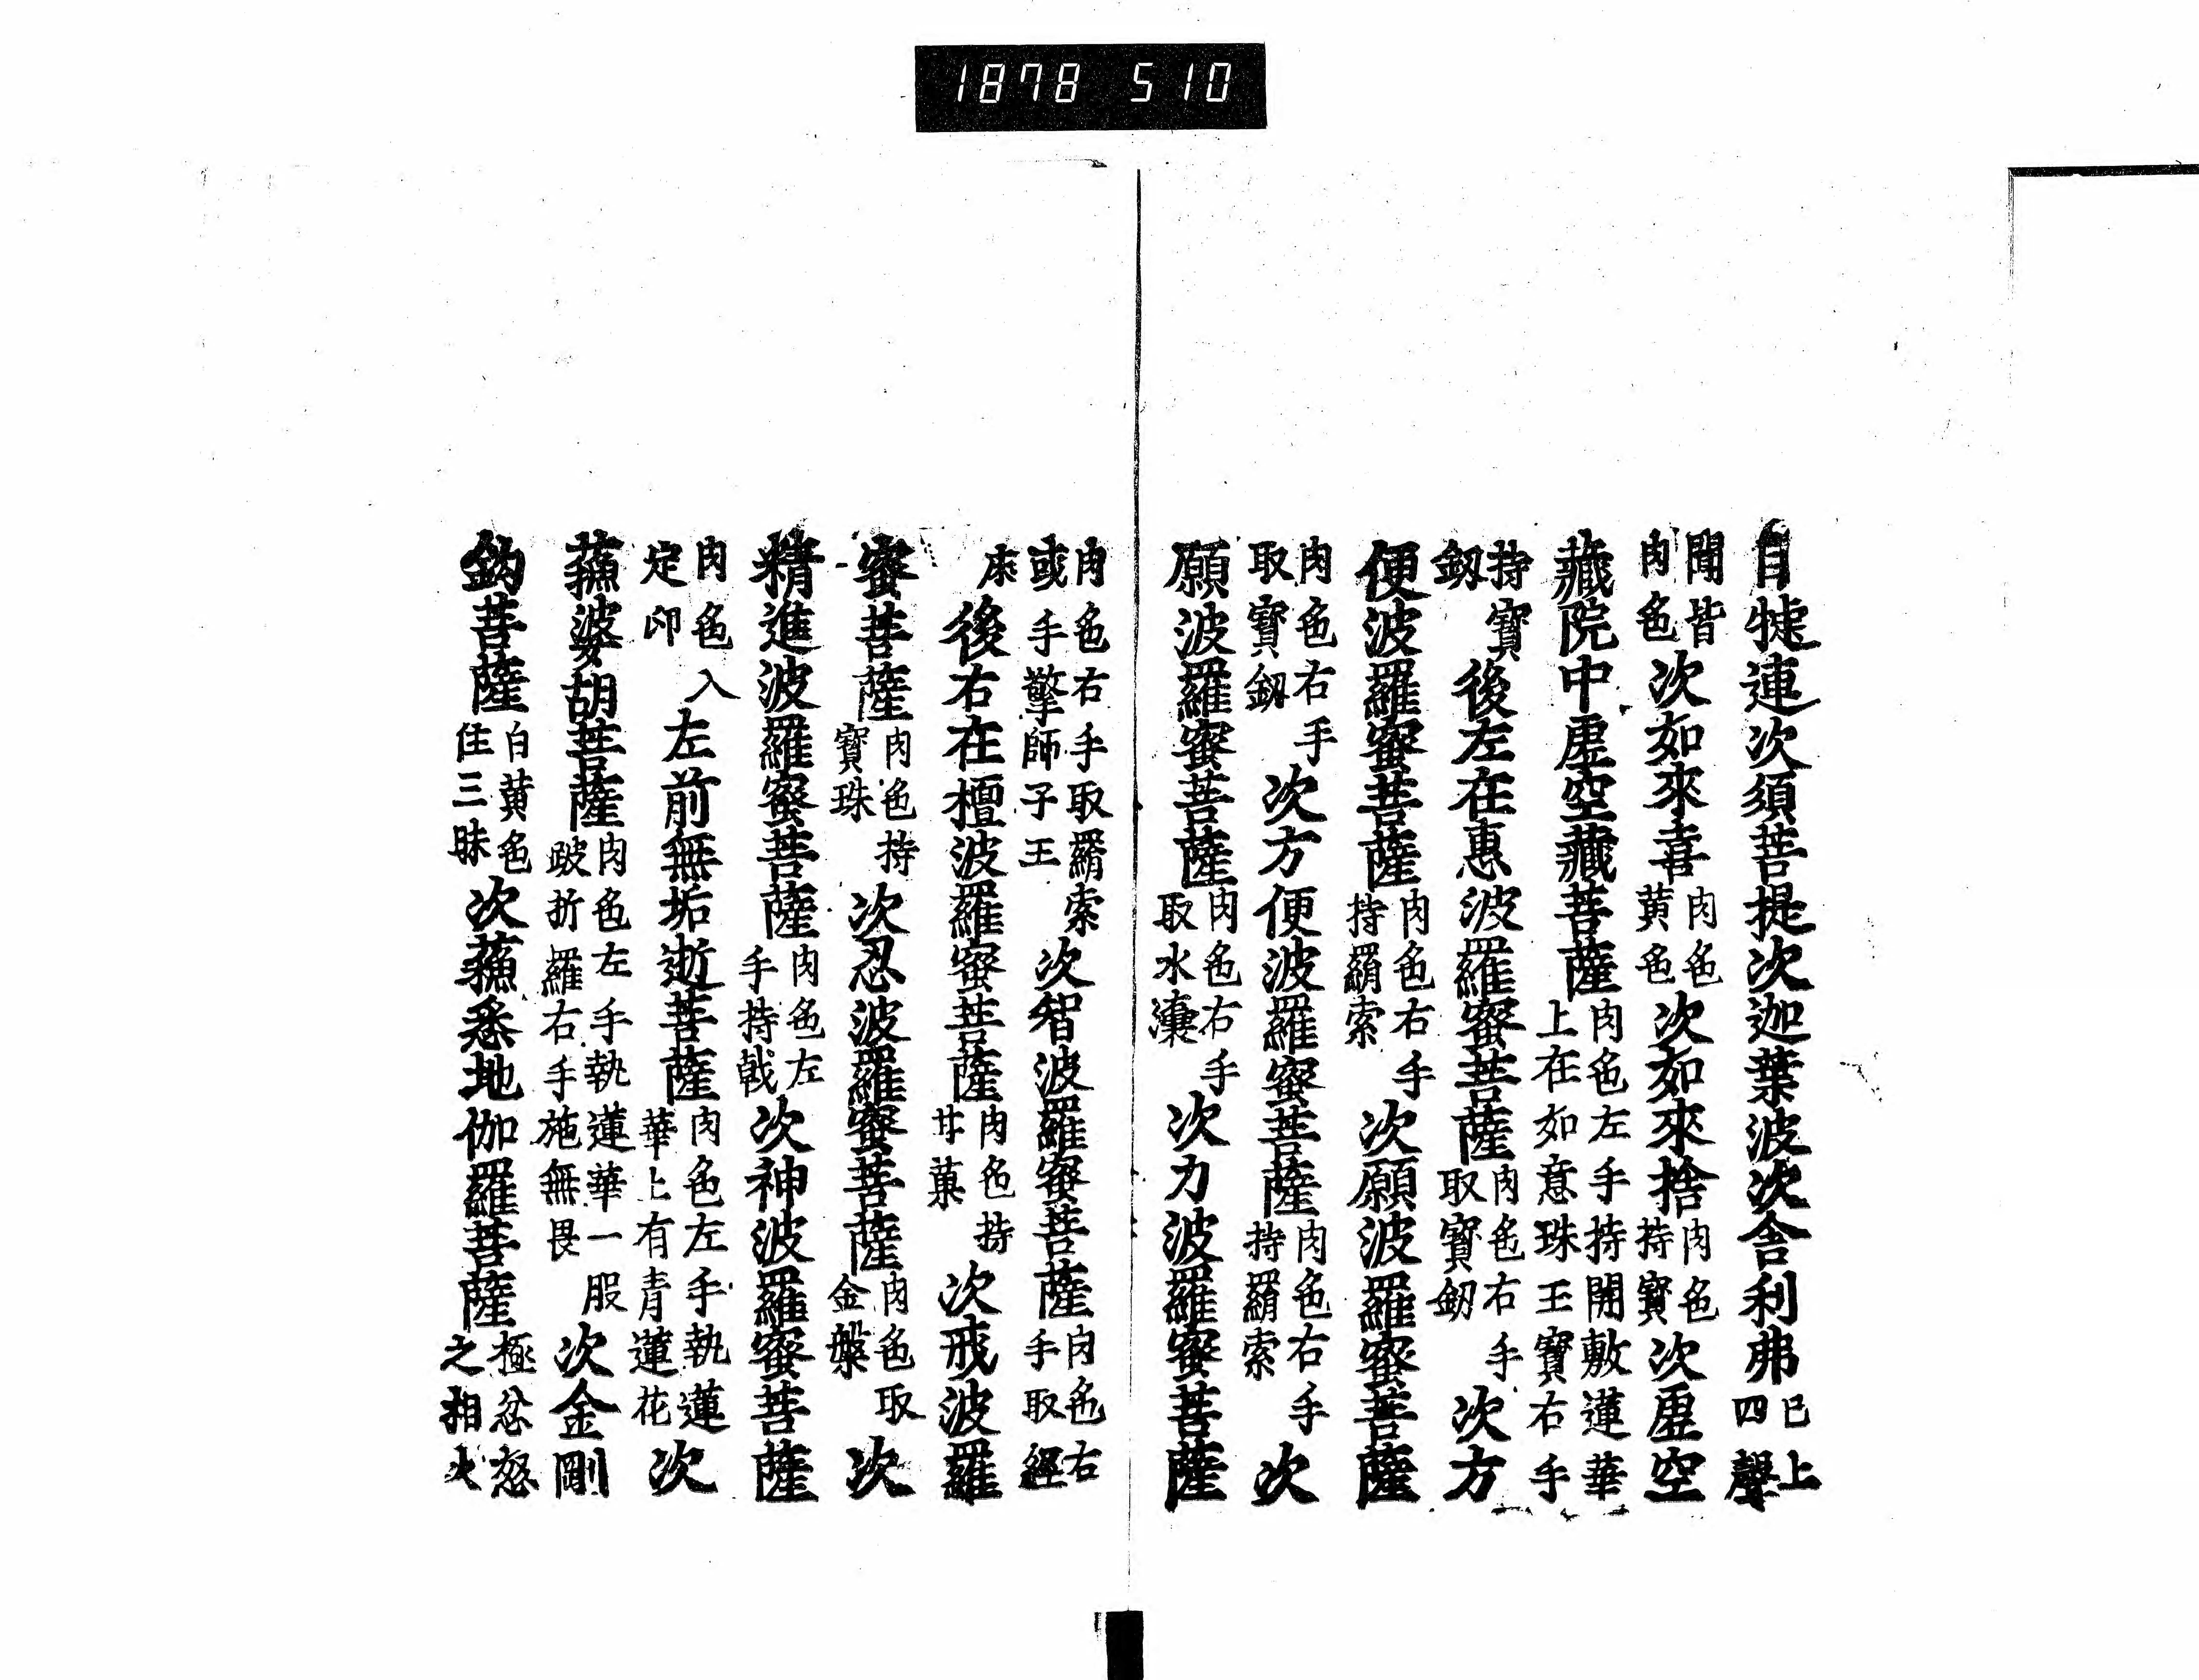 1878 510
目犍連次須菩提次迦葉波次舍利弗已上四聲
聞皆肉色次如來喜肉色黄色次如來捨肉色持寶次虛空
藏院中虛空藏菩薩肉色左手持開敷蓮華上在如意珠王寶右手
持寶釼後左在惠波羅蜜菩薩肉色右手取寶釼次方
便波羅蜜菩薩肉色右手持羂索次願波羅蜜菩薩
肉色右手取寶釼次方便波羅蜜菩薩肉色右手持羂索次
願波羅蜜菩薩肉色右手取水瀼次力波羅蜜菩薩
肉色右手取羂索或手擎師子王次智波羅蜜菩薩肉色右手取經
床後右在檀波羅蜜菩薩肉色持甘菓次戒波羅
蜜菩薩肉色持寶珠次忍波羅蜜菩薩肉色取金槃次
精進波羅蜜菩薩肉色左手持戟次神波羅蜜菩薩
肉色入定印左前無垢逝菩薩肉色左手執蓮華上有青蓮花次
蘓婆胡菩薩肉色左手執蓮華一股跛折羅右手施無畏次金剛
鈎菩薩白黄色住三昧次蘓悉地伽羅菩薩極忿怒之相火